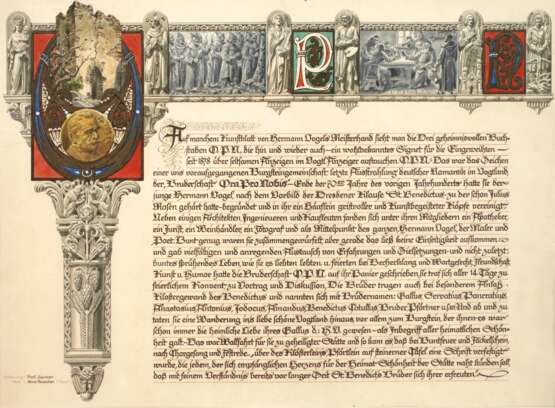 O P N
Auf manchem Kunstblatt von Hermann Vogels Meisterhand sieht man die Drei geheimnisvollen Buch-
staben O.P.N., die hin und wieder auch - ein wohlbekanntes Signet für die Eingeweihten -
seit 1878 über seltsamen Anzeigen im Vogtl. Anzeiger auftauchen O.P.N. Das war das Zeichen
einer uns voraufgegangenen Burgsteingemeinschaft: letzte Ausstrahlung deutscher Romantik im Vogtland
der, Bruderschaft Ora Pro Nobis - Ende der 70er Jahre des vorigen Jahrhunderts hatte sie der
junge Hermann Vogel, nach dem Vorbild der Dresdener Klause St. Benedictus, zu der schon Julius
Mosen gehört hatte, begründet und in ihr ein Häuflein geistvoller und kunstbegeisterter Köpfe vereinigt.
Neben einigen Architekten, Ingenieuren und Kaufleuten fanden sich unter ihren Mitgliedern ein Apotheker,
ein Jurist, ein Weinhändler, ein Fotograf und als Mittelpunkt des ganzen, Hermann Vogel, der Maler und
Poet. Bunt genug waren sie zusammengewürfelt, aber gerade das ließ keine Einseitigkeit aufkommen
und gab vielfältigen und anregenden Austausch von Erfahrungen und Zielsetzungen und nicht zuletzt
buntes Leben, und wie sie es liebten lebten u. feierten bei Becherklang und Wortgefecht, Freundschaft
Kunst u. Humor hatte die Bruderschaft O.P.N. auf ihr Panier geschrieben, sie traf sich aller 14 Tage zu
feierlichem Konvent, zu Vortrag und Diskussion. Die Brüder trugen auch bei besonderem Anlaß
Klostergewand des Benedictus und nannten sich mit Brüdernamen: Gallus Servatius Pancratius
Anastasius Antonius, Jodocus, Amandus Benedictus Catullus Bruder Pförtner u.s.w. Und ab und zu
taten sie eine Wanderung ins liebe schöne Vogtland hinaus, vor allem zum Burgstein, der ihnen - es war
schon immer die heimliche Liebe ihres Gallus d.i. H.V. gewesen - als Inbegriff aller heimatlichen Schön-
heit galt. Das war Wallfahrt für sie, zu geheiligter Stätte und so kann es daß bei Buntfeuer und Fackelschein
nach Chorgesang und Festrede, über des Klösterleins Pförtlein auf steinerner Tafel eine Schrift verfestigt
wurde, die jedem, der sich empfänglichen Herzens für der Heimat Schönheit der Stätte naht künden soll
daß mit seinem Verständnis bereits vor langer Zeit St. Benedicts Brüder sich ihrer erfreuten